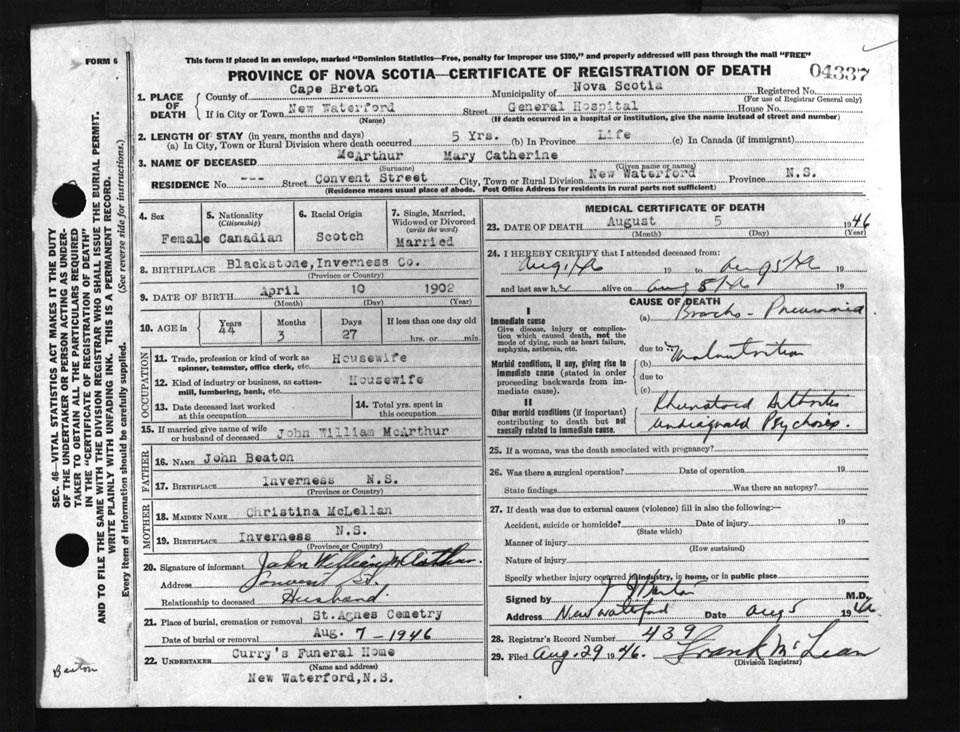 FORM 6
This form if placed in an envelope, marked "Dominion Statistics—Free, penalty for improper use $300," and properly addressed will pass through the mail "FREE"
PROVINCE OF NOVA SCOTIA—CERTIFICATE OF REGISTRATION OF DEATH
04337
1. PLACE OF DEATH
County of Cape Breton Municipality of Nova Scotia Registered No.
(For use of Registrar General only)
If in City or Town New Waterford Street General Hospital House No.
(Name) (If death occurred in a hospital or institution, give the name instead of street and number)
2. LENGTH OF STAY (in years, months and days)
(a) In City, Town or Rural Division where death occurred 5 Yrs. (b) In Province Life (c) In Canada (if immigrant)
3. NAME OF DECEASED McArthur Mary Catherine
(Surname) (Given name or names)
RESIDENCE No. --- Street Convent Street City, Town or Rural Division New Waterford Province N.S.
(Residence means usual place of abode. Post Office Address for residents in rural parts not sufficient)
4. Sex
Female
5. Nationality
(Citizenship)
Canadian
6. Racial Origin
Scotch
7. Single, Married, Widowed or Divorced
(write the word)
Married
8. BIRTHPLACE Blackstone, Inverness Co.
(Province or Country)
9. DATE OF BIRTH April 10 1902
(Month) (Day) (Year)
10. AGE in
Years Months Days If less than one day old
44 3 27 hrs. or min.
OCCUPATION
11. Trade, profession or kind of work as Housewife
spinner, teamster, office clerk, etc.
12. Kind of industry or business, as cotton- Housewife
mill, lumbering, bank, etc.
13. Date deceased last worked at this occupation
14. Total yrs. spent in this occupation
15. If married give name of wife
or husband of deceased John William McArthur
FATHER
16. NAME John Beaton
17. BIRTHPLACE Inverness N.S.
(Province or Country)
MOTHER
18. MAIDEN NAME Christina McLellan
19. BIRTHPLACE Inverness N.S.
(Province or Country)
20. Signature of informant John William McArthur
Address Convent St.
Relationship to deceased Husband.
21. Place of burial, cremation or removal St. Agnes Cemetry
Date of burial or removal Aug. 7-1946
22. UNDERTAKER Curry's Funeral Home
(Name and address)
New Waterford, N.S.
MEDICAL CERTIFICATE OF DEATH
23. DATE OF DEATH August 5 1946
(Month) (Day) (Year)
24. I HEREBY CERTIFY that I attended deceased from:
Aug 1/46 19 to Aug 5/46 19
and last saw her alive on Aug 5/46 19
CAUSE OF DEATH
I
Immediate cause
Give disease, injury or complication which caused death, not the mode of dying, such as heart failure, asphyxia, asthenia, etc.
(a) Broncho-Pneumonia
due to
Morbid conditions, if any, giving rise to immediate cause (stated in order proceeding backwards from immediate cause).
(b) Malnutrition
due to
(c)
II
Other morbid conditions (if important) contributing to death but not causally related to immediate cause.
Rheumatoid Arthritis
Undiagnosed Psychosis.
25. If a woman, was the death associated with pregnancy?
26. Was there a surgical operation? Date of operation 19
State findings Was there an autopsy?
27. If death was due to external causes (violence) fill in also the following:—
Accident, suicide or homicide? Date of injury 19
(State which)
Manner of injury
(How sustained)
Nature of injury
Specify whether injury occurred in industry, in home, or in public place
Signed by M.D.
Address New Waterford Date Aug 5 1946
28. Registrar's Record Number 439
29. Filed Aug. 29 1946. Frank McLean
(Division Registrar)
SEC. 46—VITAL STATISTICS ACT MAKES IT THE DUTY
OF THE UNDERTAKER OR PERSON ACTING AS UNDER-
TAKER TO OBTAIN ALL THE PARTICULARS REQUIRED
IN THE "CERTIFICATE OF REGISTRATION OF DEATH"
AND TO FILE THE SAME WITH THE DIVISION REGISTRAR WHO SHALL ISSUE THE BURIAL PERMIT.
WRITE PLAINLY WITH UNFADING INK. THIS IS A PERMANENT RECORD.
Every item of information should be carefully supplied. (See reverse side for instructions.)
Beaton